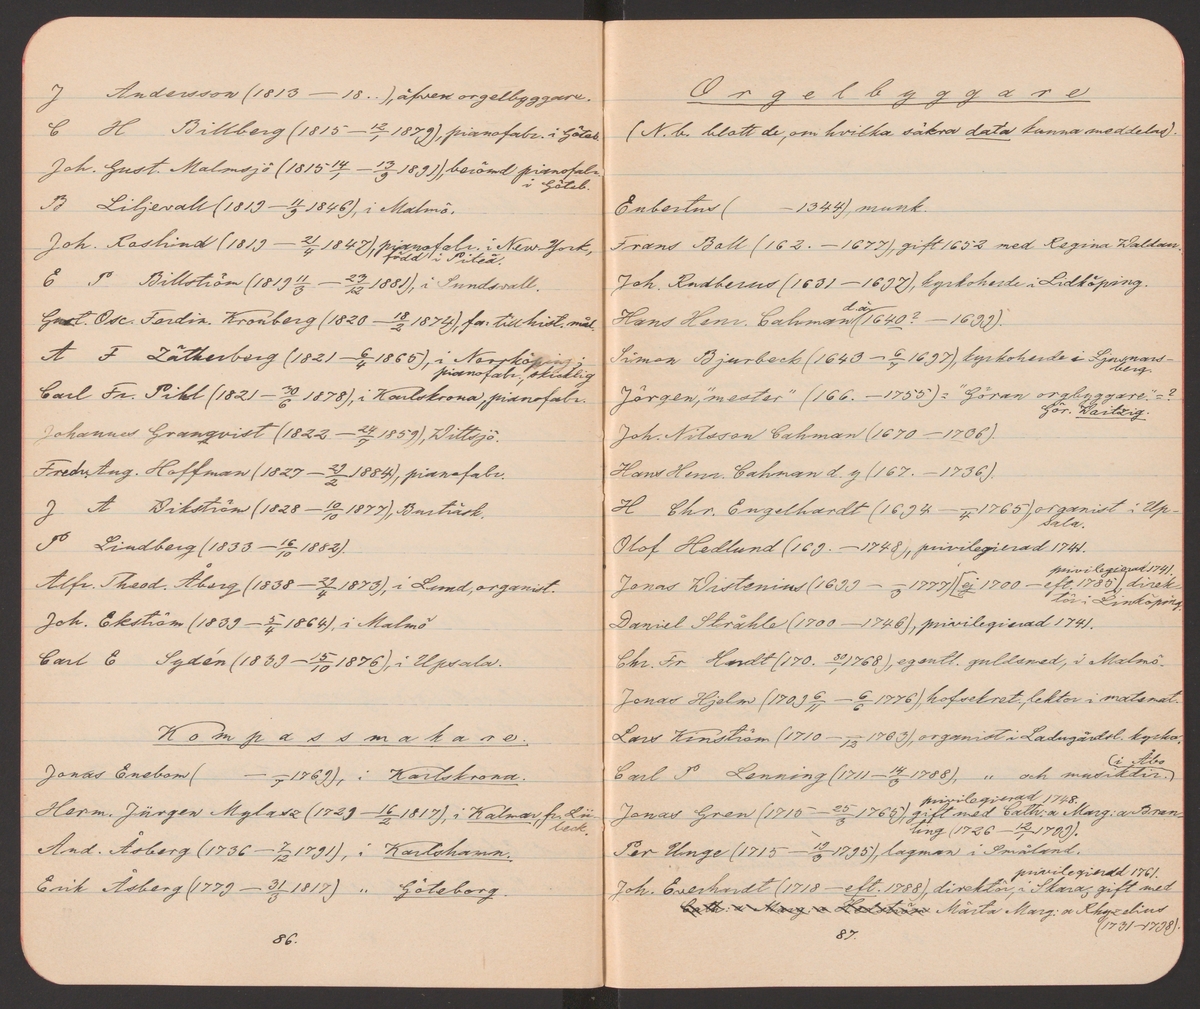 J Andersson (1813 — 18..), äfven orgelbyggare.
C H Billberg (1815 — 12/1 1879), pianofabr. i Göteb.
Joh. Gust. Malmsjö (1815 14/1 — 13/9 1891), berömd pianofabr.
i Göteb.
B Liljevall (1819 — 11/9 1846), i Malmö.
Joh. Roslind (1819 — 21/4 1847), pianofabr. i New-York,
född i Piteå.
E P Billström (1819 11/3 — 23/12 1881), i Sundsvall.
Gust. Osc. Ferdin. Kronberg (1820 — 18/2 1874), fa: till hist. mål.
A F Zätherberg (1821 — 6/4 1865), i Norrköping,
pianofabr., skicklig
Carl Fr. Pihl (1821 — 30/6 1878), i Karlskrona, pianofabr.
Johannes Granqvist (1822 — 24/7 1859), Vittsjö.
Fredr. Aug. Hoffman (1827 — 29/2 1884), pianofabr.
J A Vikström (1828 — 10/10 1877), Burträsk.
P Lindberg (1833 — 16/10 1882).
Alfr. Theod. Åberg (1838 — 29/4 1873), i Lund, organist.
Joh. Ekström (1839 — 5/4 1864), i Malmö
Carl E Sydén (1839 — 15/10 1876), i Upsala.
Kompassmakare.
Jonas Enebom ( — /7 1769), i Karlskrona.
Herm. Jürgen Mylasz (1729 — 16/2 1817), i Kalmar, fr. Lü-
beck.
And. Åsberg (1736 — 7/12 1791), i Karlshamn.
Erik Åsberg (1779 — 31/3 1817) „ Göteborg.
86.
Orgelbyggare
(N.b. blott de, om hvilka säkra data kunna meddelas).
Enbertus ( — 1344), munk.
Frans Boll (162. — 1677), gift 1652 med Regina Waldau.
Joh. Rudberus (1631 — 1697), kyrkoherde i Lidköping.
Hans Henr. Cahman d.ä. (1640? — 1699).
Simon Bjurbeck (1643 — 6/7 1697), kyrkoherde i Ljusnars-
berg.
Jörgen, "mester" (166. — 1755) = "Göran orgbyggare" = ?
Gör. Waitzig.
Joh. Nilsson Cahman (1670 — 1736).
Hans Henr. Cahman d.y (167. — 1736).
H Chr. Engelhardt (1694 — /4 1765), organist i Up-
sala.
Olof Hedlund (169. — 1748), privilegierad 1741.
privilegierad 1741.
Jonas Wistenius (1699 — /3 1777) [ej 1700 — eft. 1785), direk-
tör i Linköping.
Daniel Stråhle (1700 — 1746), privilegierad 1741.
Chr. Fr. Herdt (170. 30/1 1768), egentl. guldsmed, i Malmö.
Jonas Hjelm (1709 6/11 — 6/6 1776), hofsekret., lektor i matemat.
Lars Kinström (1710 — /12 1763), organist i Ladugårdsl. kyrka.
(i Åbo
Carl P Lenning (1711 — 14/3 1788), „ och musikdir.)
privilegierad 1748.
Jonas Gren (1715 — 25/3 1765), gift med Cath:a Marg:a Bren-
ting (1726 — 12/1 1799).
Per Unge (1715 — 19/3 1795), lagman i Småland.
privilegierad 1761.
Joh. Everhardt (1718 — eft. 1788), direktör, i Skara, gift med
Märta Marg:a Rhyzelius
(1731—1798).
87.